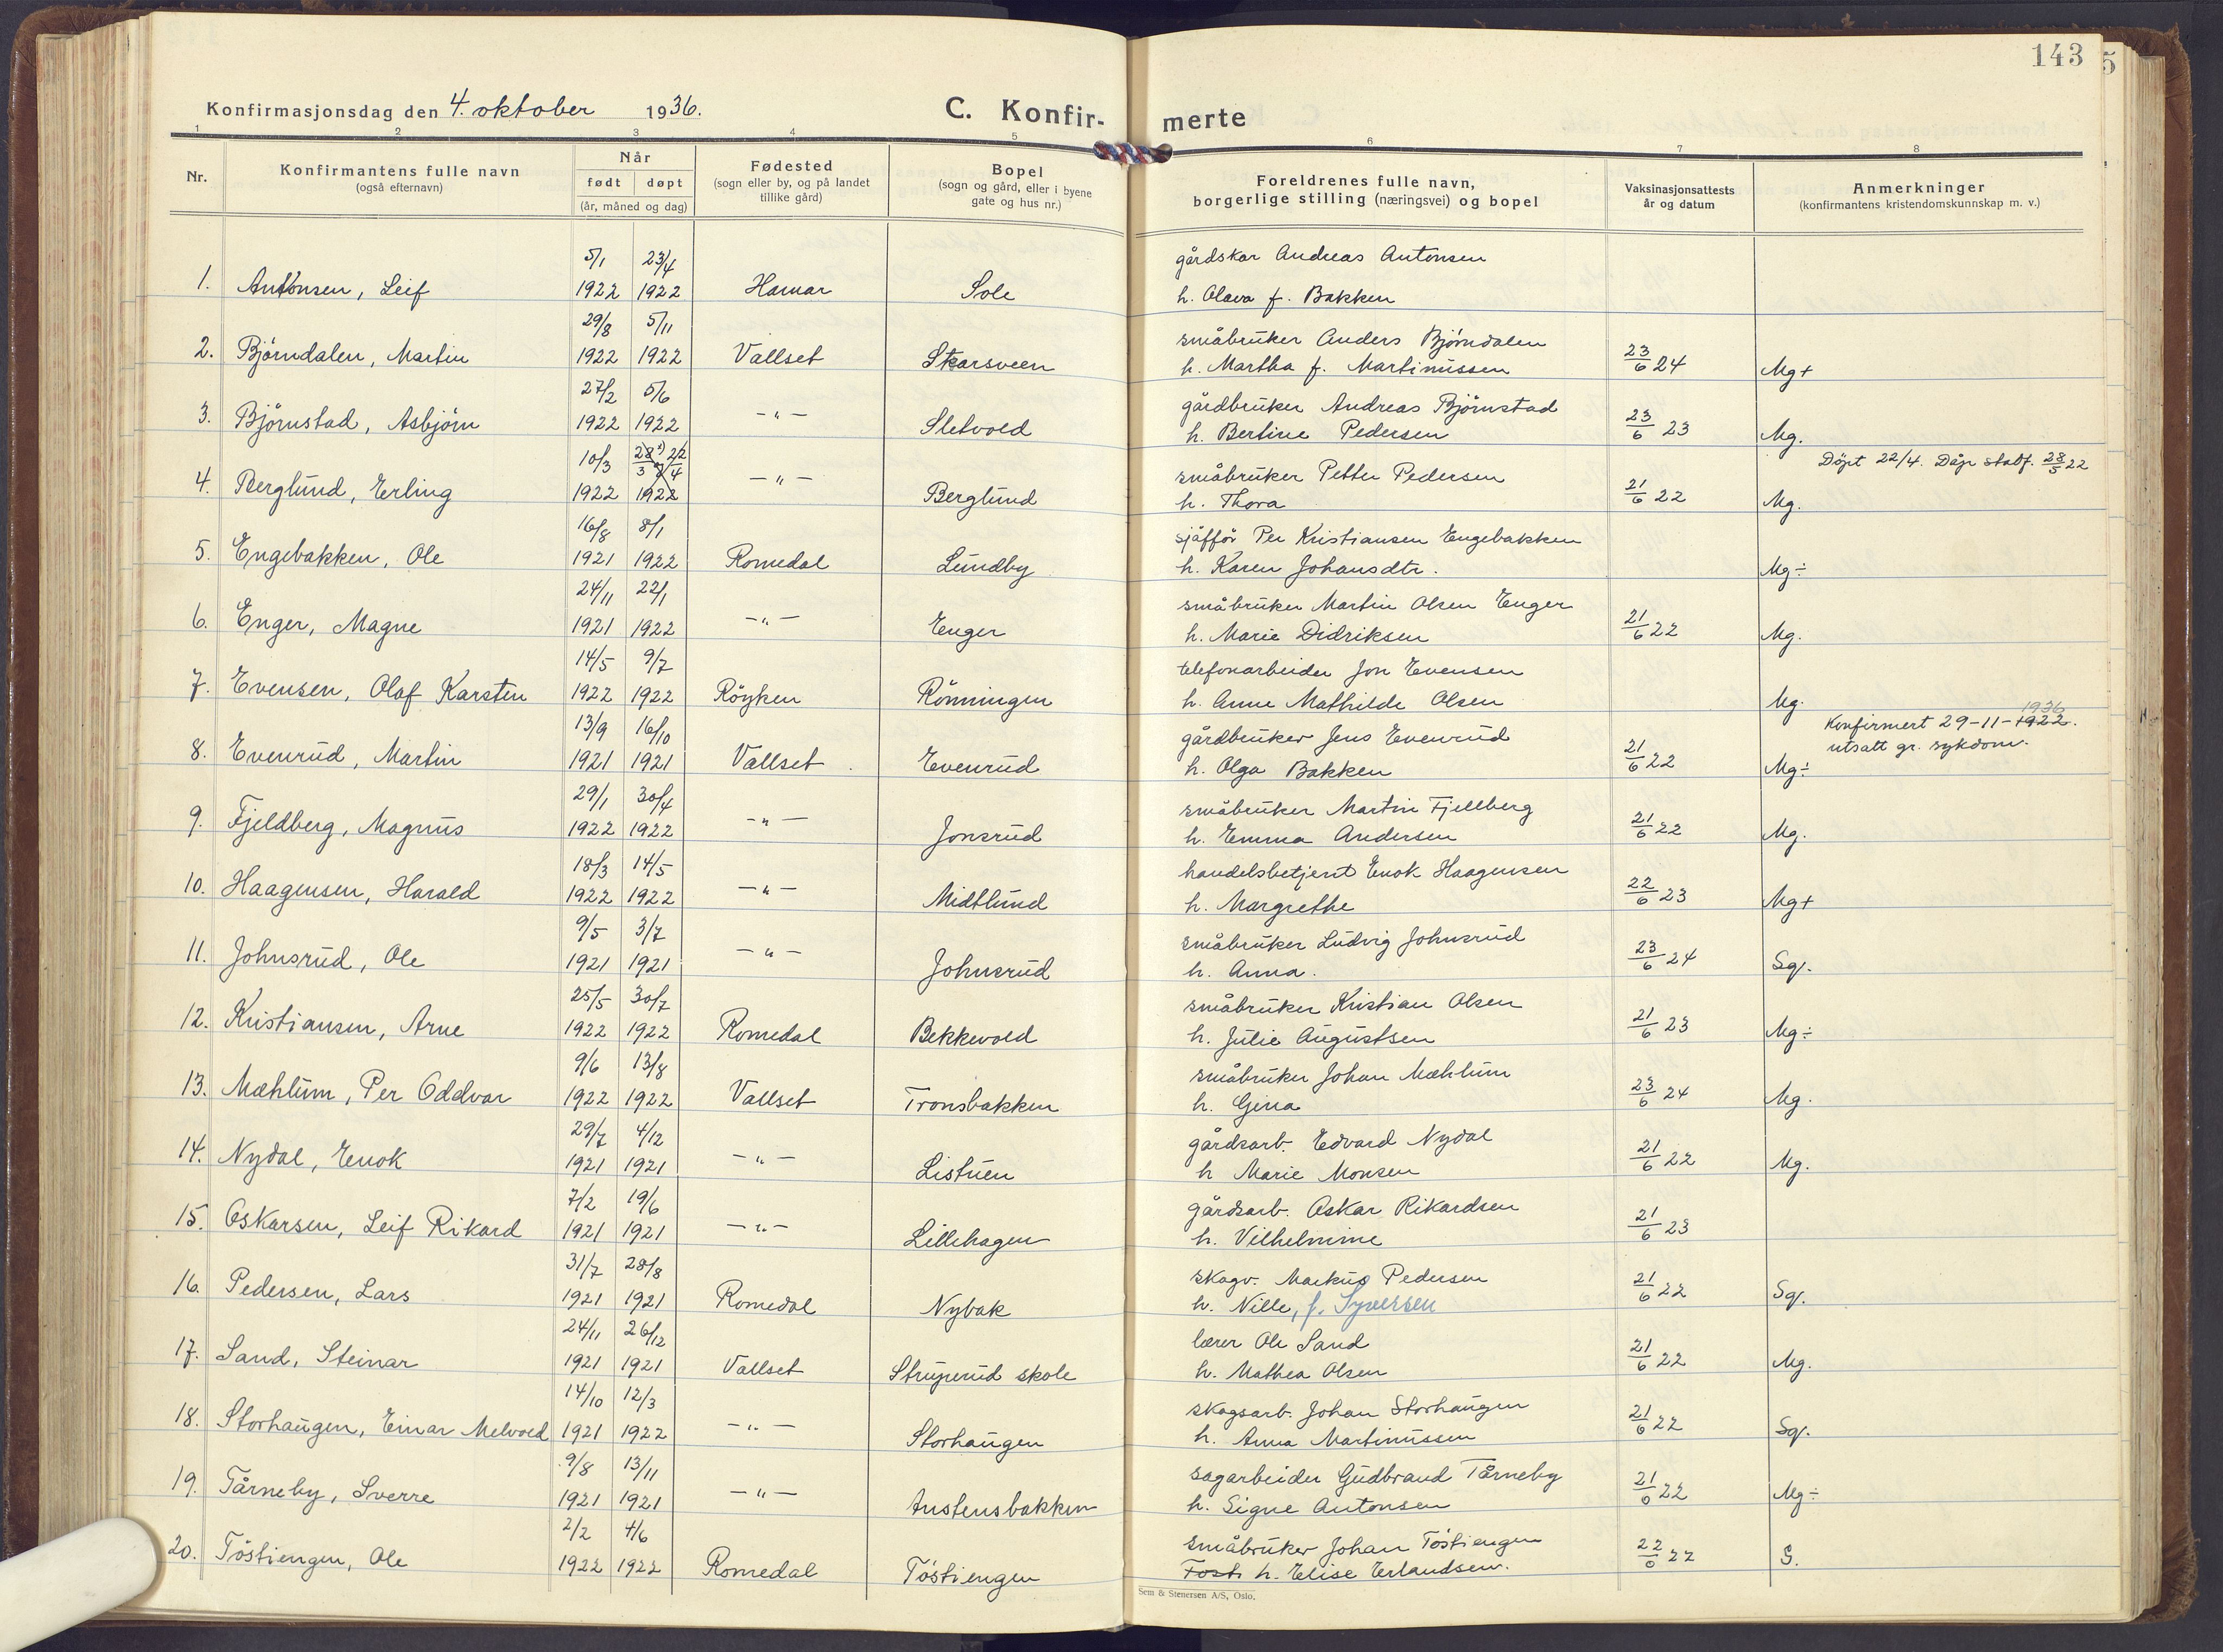 143
Konfirmasjonsdag den 4. oktober 1936.
C. Konfir-
merte
1 2 3 4 5 6 7 8
Nr.
Konfirmantens fulle navn
(også efternavn)
Når
født døpt
(år, måned og dag)
Fødested
(sogn eller by, og på landet
tillike gård)
Bopel
(sogn og gård, eller i byene
gate og hus nr.)
Foreldrenes fulle navn,
borgerlige stilling (næringsvei) og bopel
Vaksinasjonsattests
år og datum
Anmerkninger
(konfirmantens kristendomskunnskap m. v.)
5/1 23/4 gårdskar Andreas Antonsen
1. Antonsen, Leif 1922 1922 Hamar Sole h. Olava f. Bakken
29/8 5/11 småbruker Anders Bjørndalen
2. Bjørndalen, Martin 1922 1922 Vallset Skarsveen h. Martha f. Martinussen 23/6 24 Mg+
27/2 5/6 gårdbruker Andreas Bjørnstad
3. Bjørnstad, Asbjørn 1922 1922 -"- Sletvold h. Bertine Pedersen 23/6 23 Mg.
10/3 28/3 22/4 småbruker Petter Pedersen Döpt 22/4. Dåp stadf. 28/5 22
4. Berglund, Erling 1922 1922 -"- Berglund h. Thora 21/6 22 Mg.
16/8 8/1 sjåffør Per Kristiansen Engebakken
5. Engebakken, Ole 1921 1922 Romedal Lundby h. Karen Johansdtr. Mg÷
24/11 22/1 småbruker Martin Olsen Enger
6. Enger, Magne 1921 1922 -"- Enger h. Marie Didriksen 21/6 22 Mg.
14/5 9/7 telefonarbeider Jon Evensen
7. Evensen, Olaf Karsten 1922 1922 Röyken Rönningen h. Anne Mathilde Olsen Mg.
1936
13/9 16/10 gårdbruker Jens Evenrud Konfirmert 29-11-1922.
utsatt gr. sykdom.
8. Evenrud, Martin 1921 1921 Vallset Evenrud h. Olga Bakken 21/6 22 Mg÷
29/1 30/4 småbruker Martin Fjellberg
9. Fjeldberg, Magnus 1922 1922 -"- Jonsrud h. Emma Andersen 21/6 22 Mg.
18/3 14/5 handelsbetjent Enok Haagensen
10. Haagensen, Harald 1922 1922 -"- Midtlund h. Margrethe 22/6 23 Mg+
9/5 3/7 småbruker Ludvig Johnsrud
11. Johnsrud, Ole 1921 1921 -"- Johnsrud h. Anna. 23/6 24 Sg.
25/5 30/7 småbruker Kristian Olsen
12. Kristiansen, Arne 1922 1922 Romedal Bekkevold h. Julie Augustsen 21/6 23 Mg÷
9/6 13/8 småbruker Johan Mæhlum
13. Mæhlum, Per Oddvar 1922 1922 Vallset Tronsbakken h. Gina 23/6 24 Mg.
29/7 4/12 gårdsarb. Edvard Nydal
14. Nydal, Enok 1921 1921 -"- Listuen h Marie Monsen 21/6 22 Mg.
7/2 19/6 gårdsarb. Oskar Rikardsen
15. Oskarsen, Leif Rikard 1921 1921 -"- Lillehagen h. Vilhelmine 21/6 23
31/7 28/8 skogv. Markus Pedersen
16. Pedersen, Lars 1921 1921 Romedal Nybak h. Nille, f. Syversen 21/6 22 Sg.
24/11 26/12 lærer Ole Sand
17. Sand, Steinar 1921 1921 Vallset Struperud skole h. Mathea Olsen 21/6 22 Mg.
14/10 12/3 skogsarb. Johan Storhaugen
18. Storhaugen, Einar Melvold 1921 1922 -"- Storhaugen h. Anna Martinussen 21/6 22 Sg.
9/8 13/11 sagarbeider Gudbrand Tårneby
19. Tårneby, Sverre 1921 1921 -"- Austensbakken h. Signe Antonsen 21/6 22 Mg÷
2/2 4/6 småbruker Johan Töstiengen
20. Töstiengen, Ole 1922 1922 Romedal Töstiengen Tost. h. Elise Erlandsen. 22/6 22 S.
Sem & Stenersen A/S, Oslo.